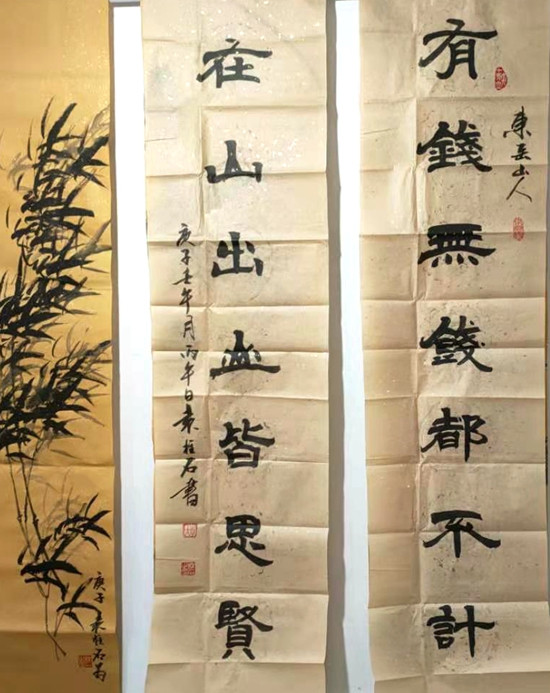 有錢無錢都不計
東岳山人
在山出山皆思賢
庚子壬午月丙午日袁柱石書
庚子袁柱石写